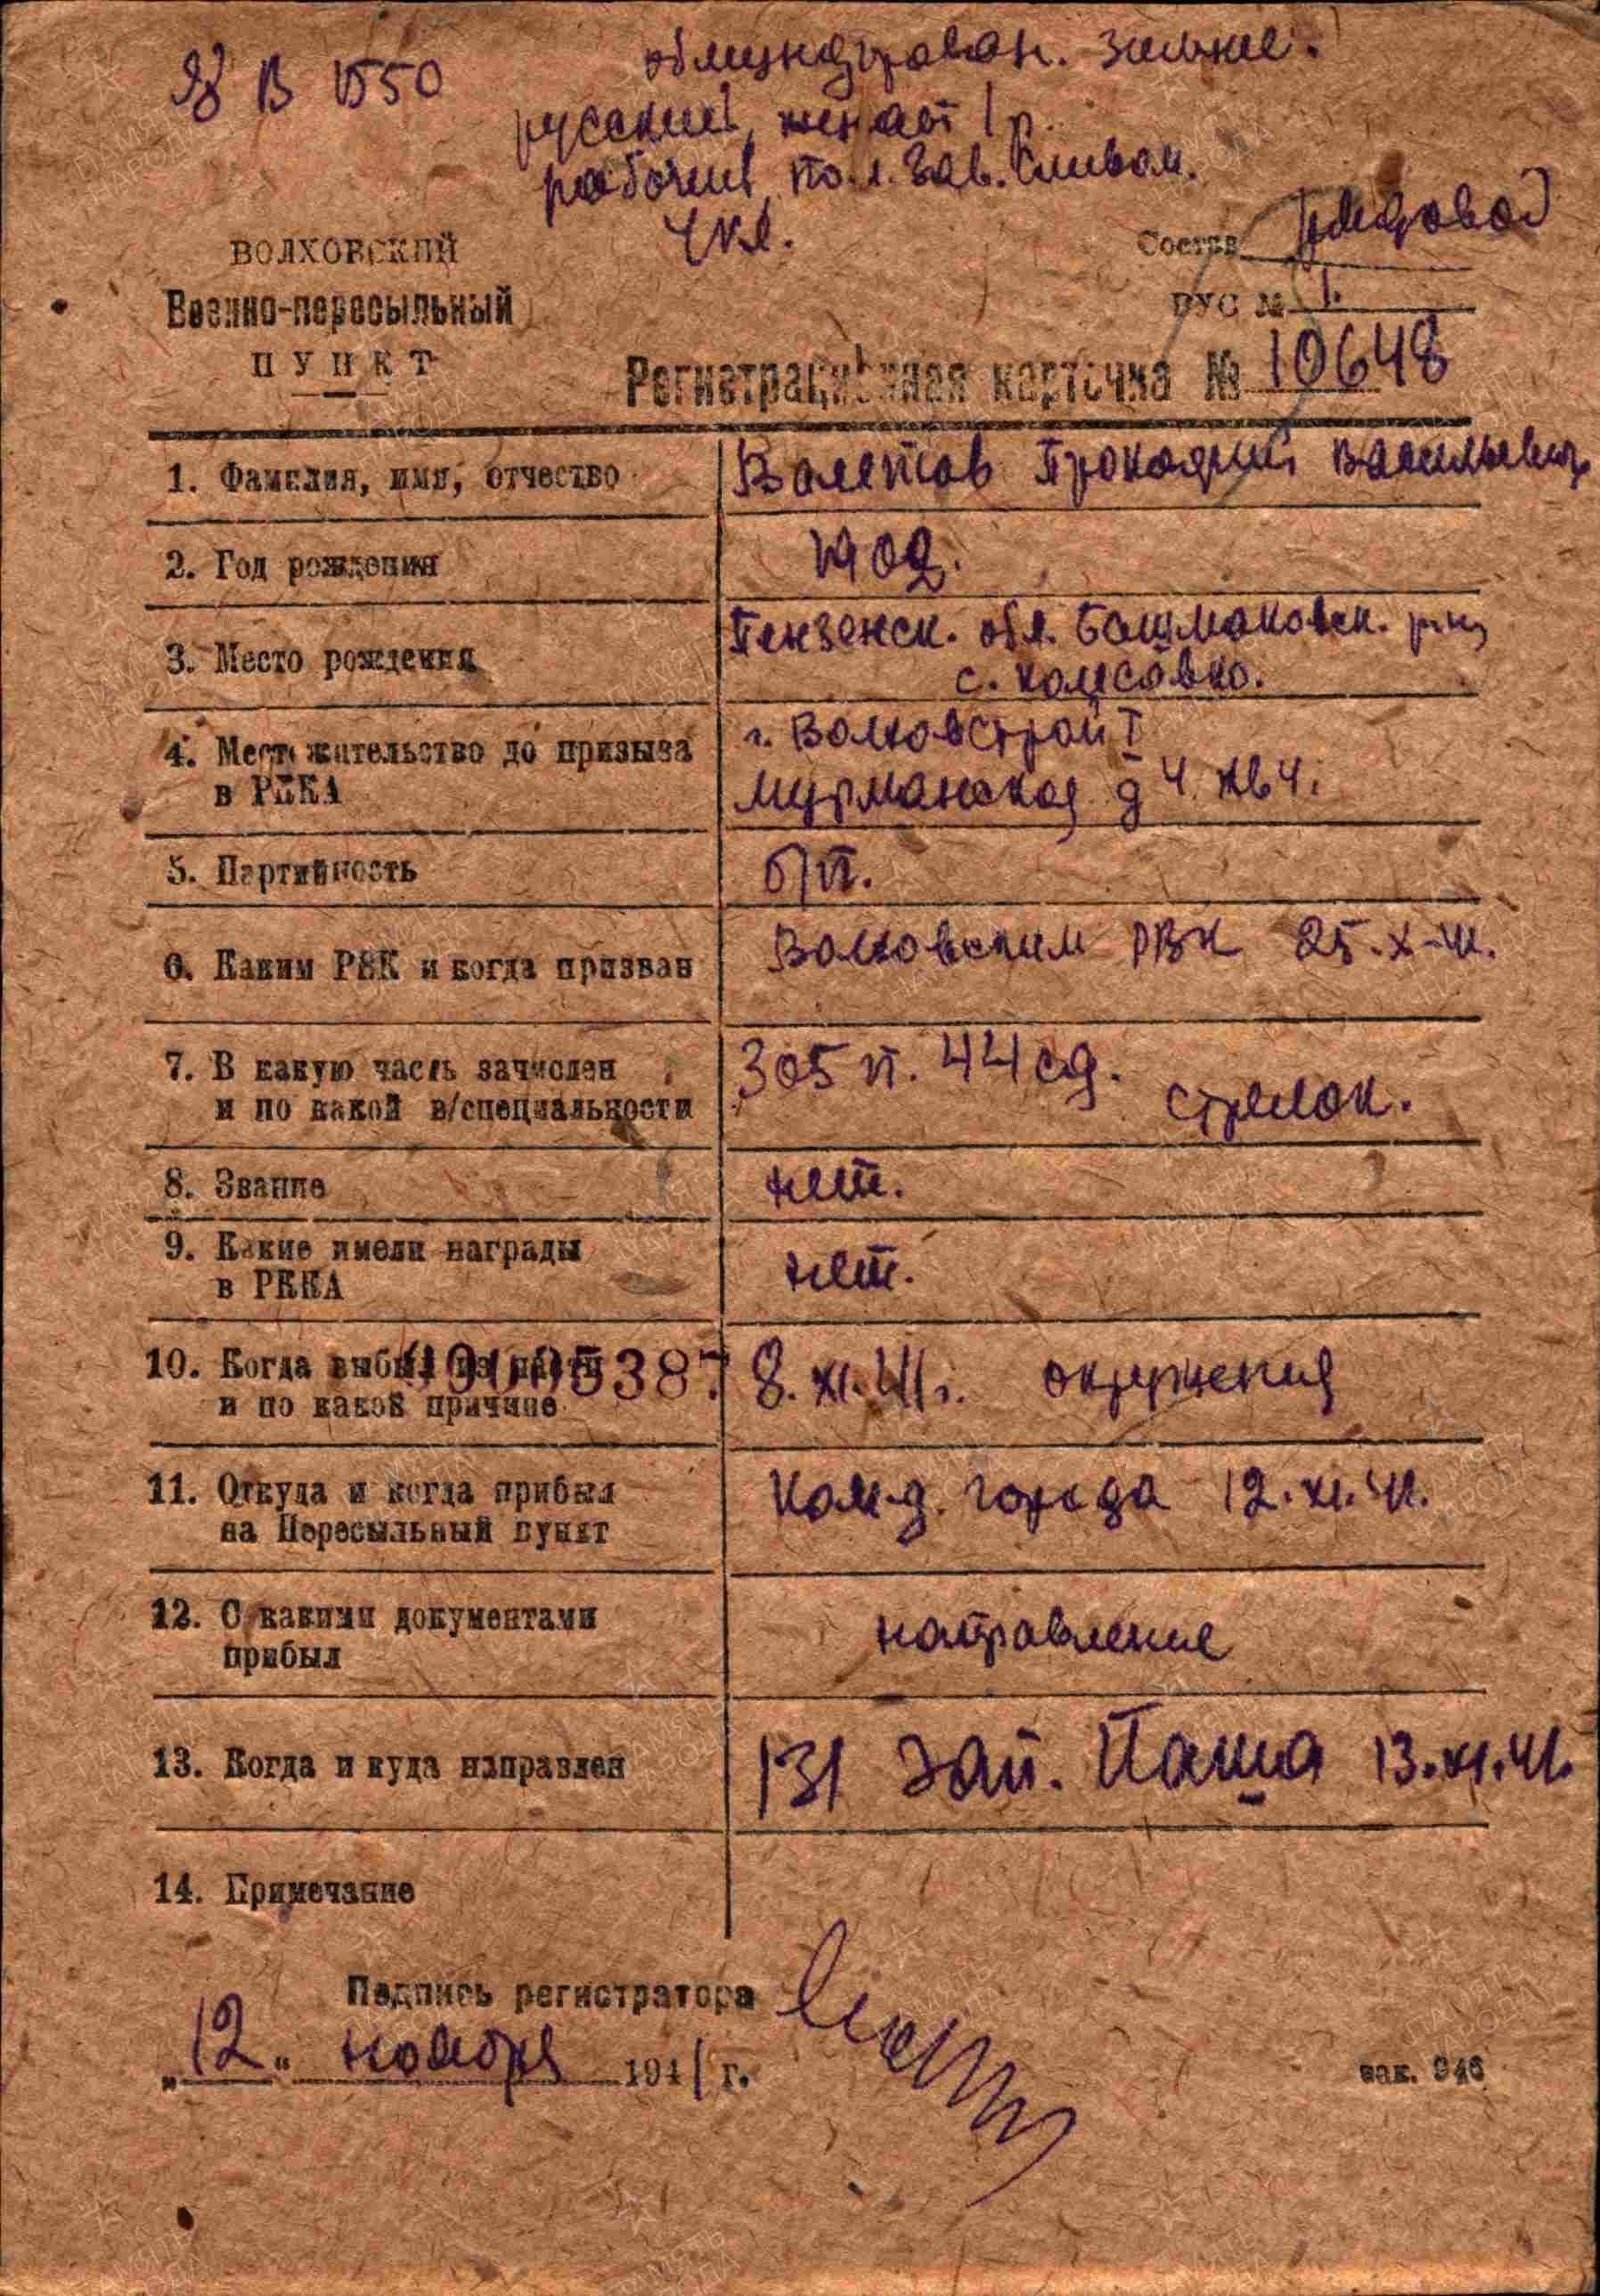 В 1550
обмундирован. зимнее.
русский, женат 1 р.
рабочий, по.л. зав.
4 кл.
ВОЛХОВСКИЙ
Военно-пересыльный
ПУНКТ
Состав рядовой
ВУС № 1.
Регистрационная карточка № 10648
1. Фамилия, имя, отчество Валетов Прокофий Васильевич
2. Год рождения 1902.
3. Место рождения Пензенск. обл. Башмаковск. р-н,
с.
4. Место жительство до призыва г. Волховстрой I
в РККА Мурманская д 4 кв 4.
5. Партийность б/п.
6. Каким РВК и когда призван Волховским РВК 25.X-41.
7. В какую часть зачислен 305 п. 44 сд.
и по какой в/специальности стрелок.
8. Звание нет.
9. Какие имели награды нет.
в РККА
10. Когда выбыл из части 8.XI.41г. окружения
и по какой причине
11. Откуда и когда прибыл Ком-д. города 12.XI.41.
на Пересыльный пункт
12. С какими документами направление
прибыл
13. Когда и куда направлен 131 зап. Паша 13.XI.41.
14. Примечание
Подпись регистратора
„12“ ноября 1941 г.
зак. 946